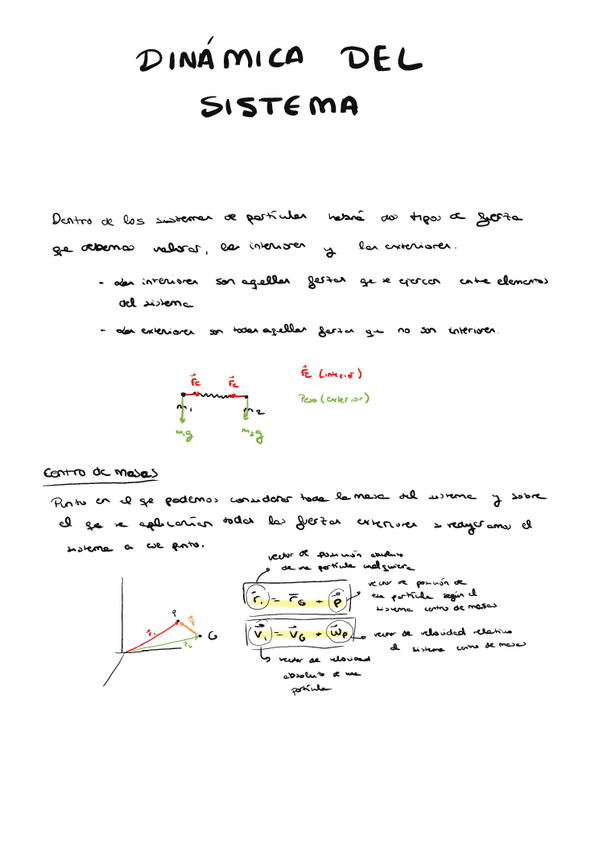 DINÁMICA DEL
SISTEMA
Dentro de los sistemas de partículas habrá dos tipos de fuerza
que debemos valorar, las interiores y las exteriores.
- Las interiores son aquellas fuerzas que se ejercen entre elementos
del sistema
- Las exteriores son todas aquellas fuerzas que no son interiores.
Fe Fe Fe (interior)
m1 m2 Peso (exterior)
m1g m2g
Centro de masas
Punto en el que podemos considerar toda la masa del sistema y sobre
el que se aplicarían todas las fuerzas exteriores si redujeramos el
sistema a ese punto.
vector de posición absoluto
de una partícula cualquiera
vector de posición de
esa partícula según el
sistema centro de masas
r⃗i = r⃗G + p⃗
v⃗i = v⃗G +
vector de velocidad relativo
al sistema centro de masas
vector de velocidad
absoluto de una
partícula
P
ri
G
rG